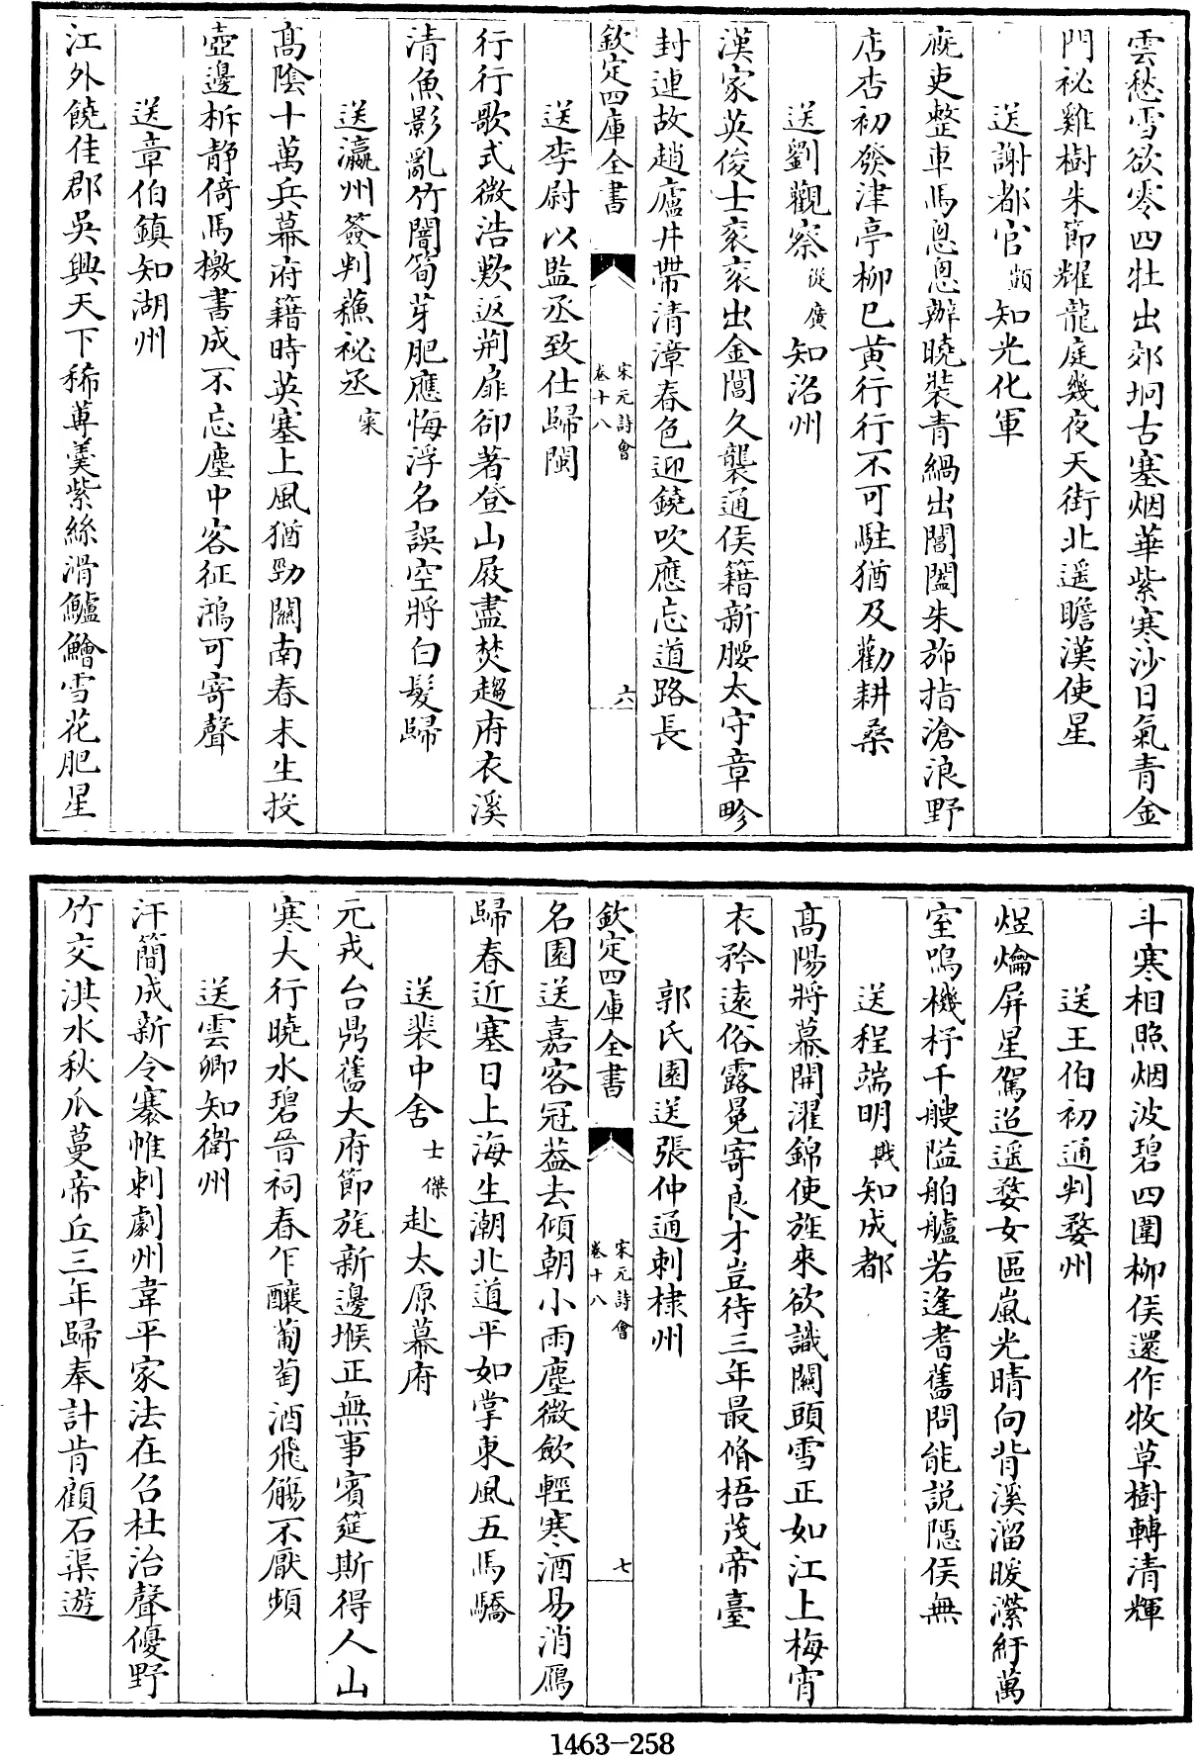 雲愁雪欲零四牡出郊坰古塞烟華紫寒沙日氣青金
門祕雞樹朱節耀龍庭幾夜天街北遥瞻漢使星
送謝都官顗知光化軍
廐吏整車馬悤悤辦曉裝青綱出閶闔朱旆指滄浪野
店杏初發津亭柳已黄行行不可駐猶及勸耕桑
送劉觀察從廣知洺州
漢家英俊士衮衮出金閨久襲通侯籍新腰太守章畛
封連故趙廬井帶清漳春色迎鐃吹應忘道路長
欽定四庫全書
宋元詩會
卷十八
六
送李尉以監丞致仕歸閩
行行歌式微浩歎返荆扉卻著登山屐盡焚趨府衣溪
清魚影亂竹闇筍芽肥應悔浮名誤空將白髮歸
送瀛州簽判蘓祕丞寀
髙陰十萬兵幕府籍時英塞上風猶勁關南春未生投
壺邊柝静倚馬檄書成不忘塵中客征鴻可寄聲
送章伯鎮知湖州
江外饒佳郡吳興天下稀蓴羹紫絲滑鱸鱠雪花肥星
斗寒相照烟波碧四圍柳侯還作牧草樹轉清輝
送王伯初通判婺州
煜爚屏星駕迢遥婺女區嵐光晴向背溪溜暖瀠紆萬
室鳴機杼千艘隘舶艫若逢耆舊問能説隱侯無
送程端明戡知成都
髙陽將幕開濯錦使旌來欲識關頭雪正如江上梅宵
衣矜遠俗露冕寄良才豈待三年最脩梧茂帝臺
郭氏園送張仲通刺棣州
欽定四庫全書
宋元詩會
卷十八
七
名園送嘉客冠葢去傾朝小雨塵微歛輕寒酒易消鴈
歸春近塞日上海生潮北道平如掌東風五馬驕
送裴中舍士傑赴太原幕府
元戎台鼎舊大府節旄新邊堠正無事賓筵斯得人山
寒大行曉水碧晉祠春乍釀葡萄酒飛觴不厭頻
送雲卿知衛州
汗簡成新令褰帷刺劇州韋平家法在召杜治聲優野
竹交淇水秋瓜蔓帝丘三年歸奉計肯顧石渠遊
1463-258